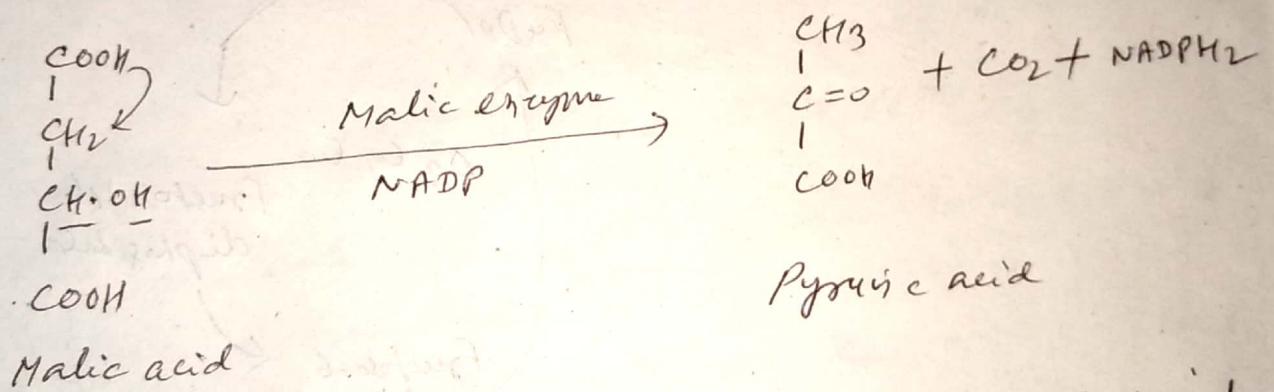 COOH
CH2
CH·OH
COOH
Malic acid
Malic enzyme
NADP
CH3
C=O
COOH
+ CO2 + NADPH2
Pyruvic acid